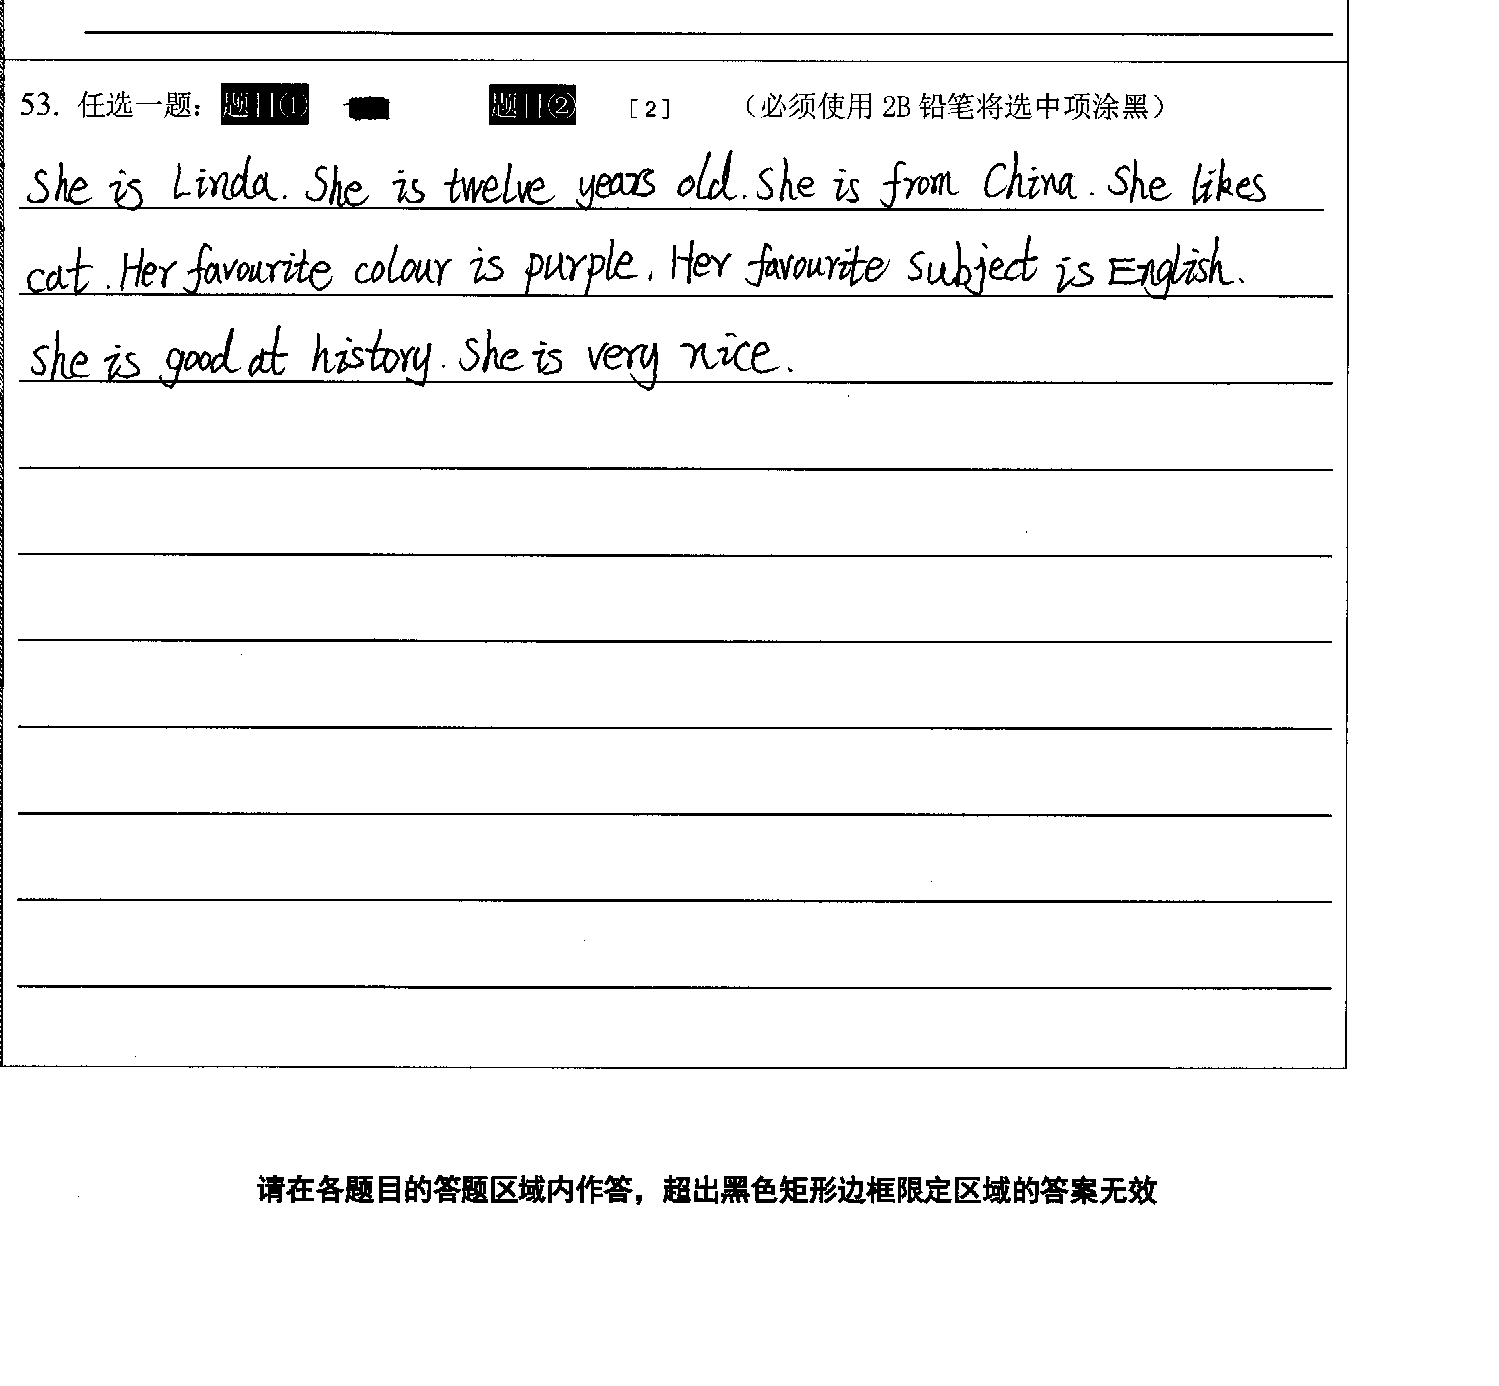 53. 任选一题: 题目① 题目② [2] (必须使用 2B 铅笔将选中项涂黑)
She is Linda. She is twelve years old. She is from China. She likes
cat. Her favourite colour is purple. Her favourite subject is English.
She is good at history. She is very nice.
请在各题目的答题区域内作答，超出黑色矩形边框限定区域的答案无效